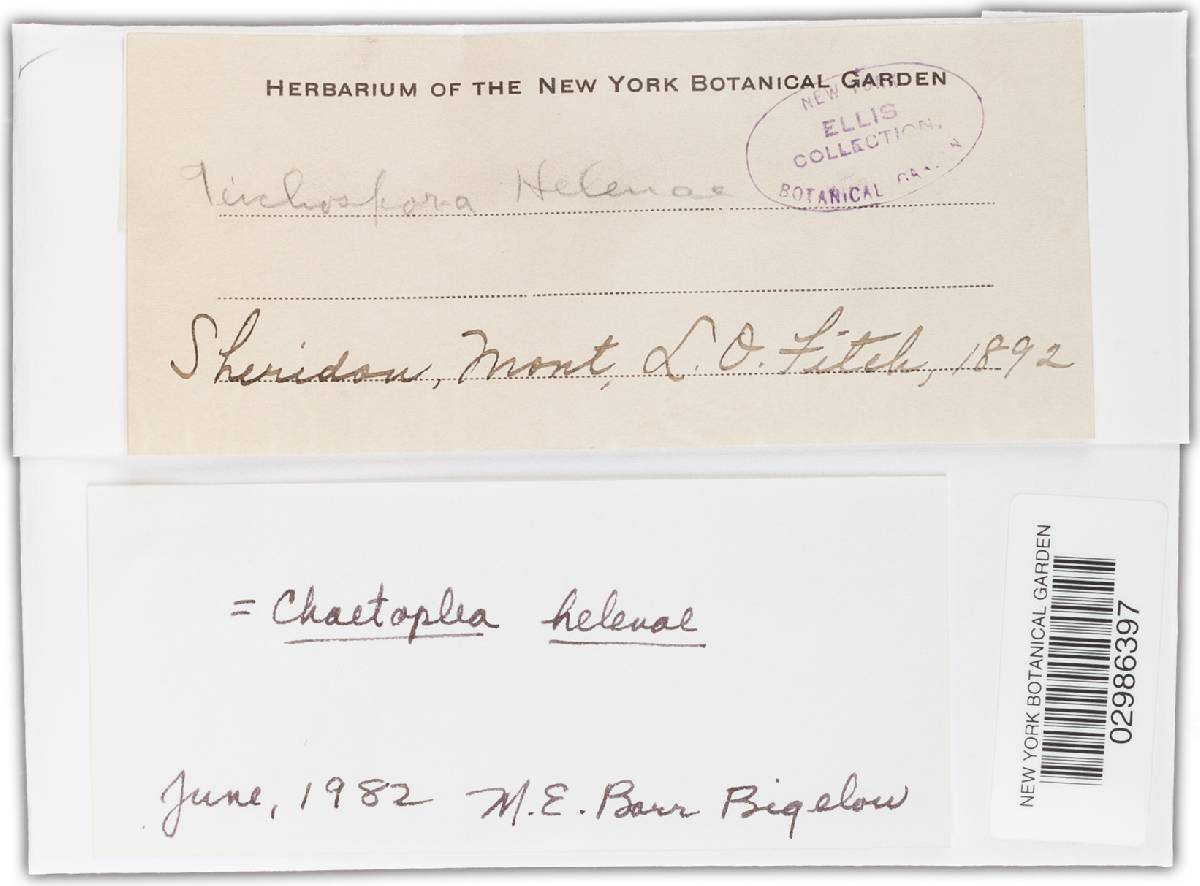 HERBARIUM OF THE NEW YORK BOTANICAL GARDEN
NEW YORK
ELLIS
COLLECTION.
BOTANICAL GARDEN
Teichospora Helenae
Sheridan, Mont, L. O. Fitch, 1892
= Chaetoplea helenae
June, 1982 M.E. Barr Bigelow
NEW YORK BOTANICAL GARDEN
02986397